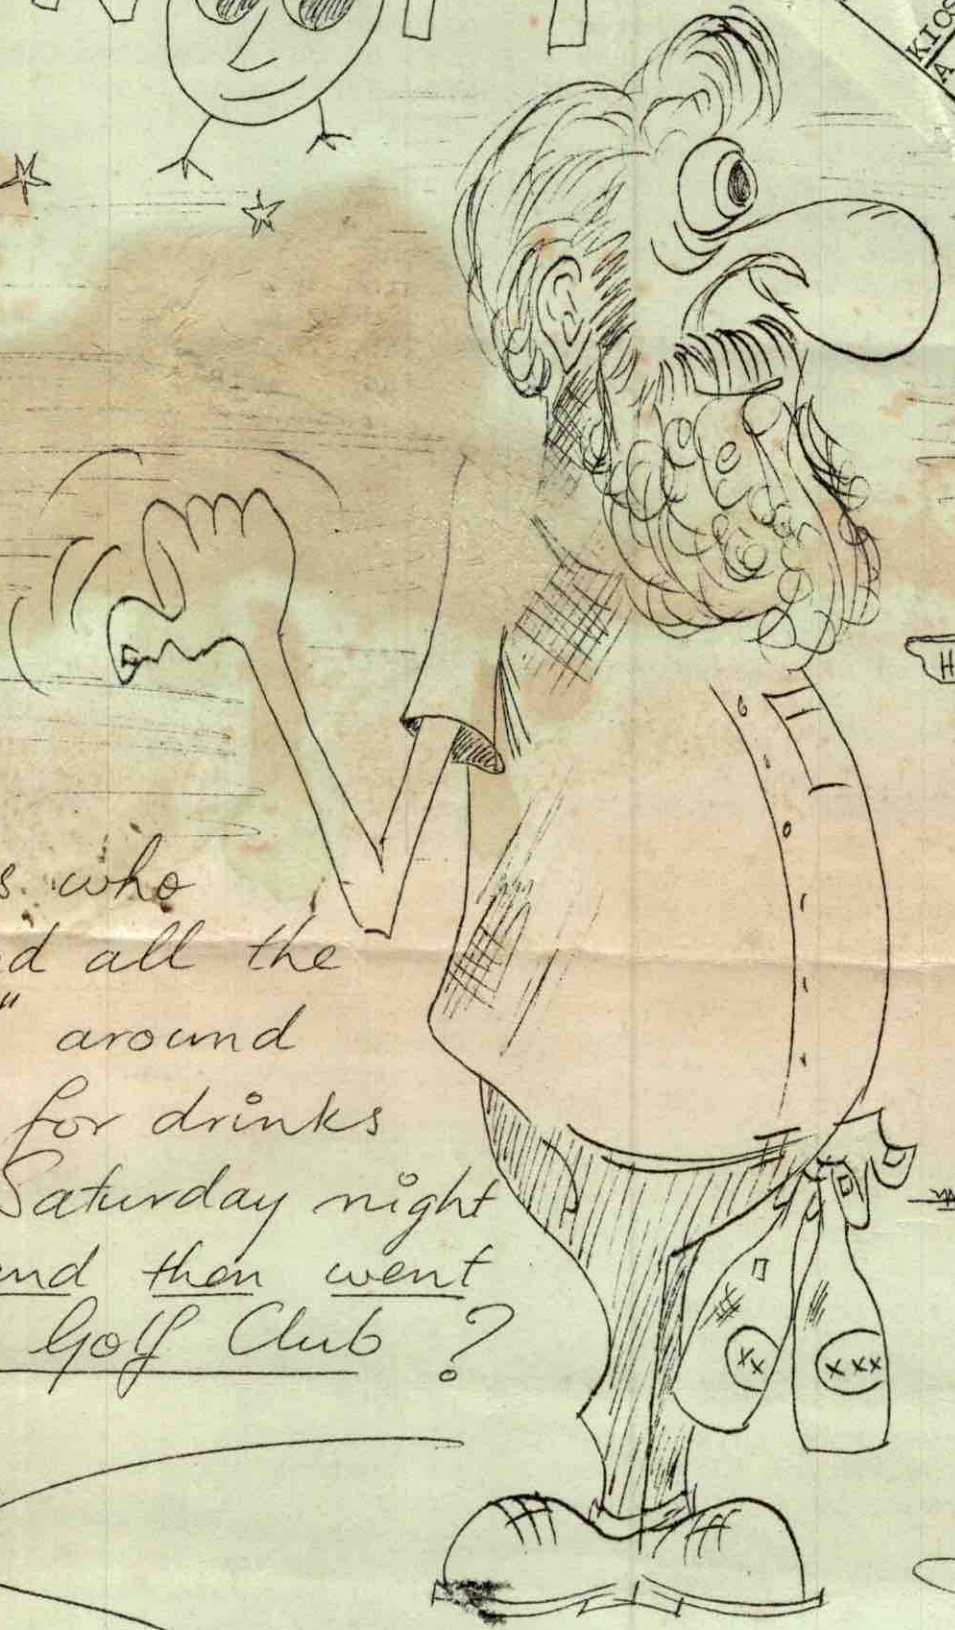 KIOS
A
H
s who
d all the
" around
for drinks
Saturday night
and then went
Golf Club ?
XX
XXX